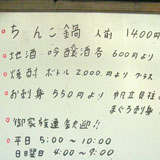 ちゃんこ鍋 一人前 1400円
地酒・吟醸酒各 600円より
焼酎 ボトル 2000円より グラス
お刺身 550円より 帆立貝柱
まぐろ刺身
御家族連歓迎!!
平日 5:00～10:00
日曜日 4:00～9:00